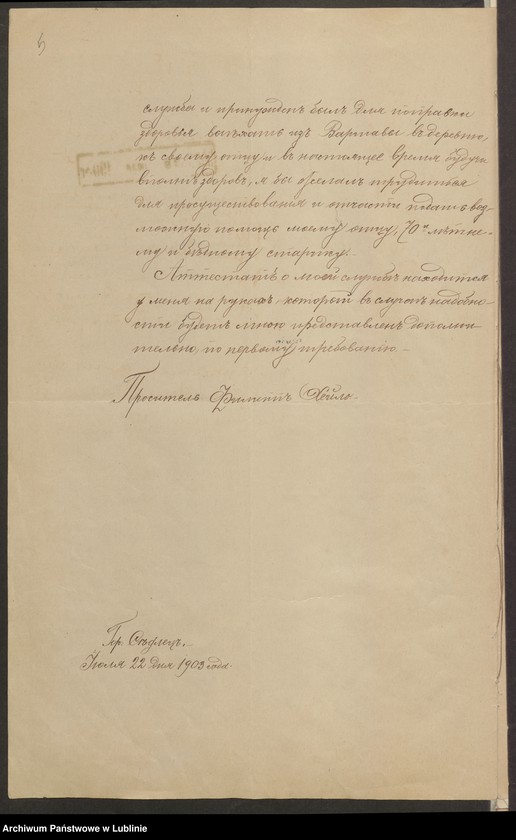 службы и принужденъ былъ для поправки
здоровья выѣхать изъ Варшавы въ деревню,
къ своему отцу и въ настоящее время будучи
вполнѣ здоровъ, я бы желалъ трудиться
для просуществованія и отчасти подать воз-
можную помощь моему отцу, 70ти лѣтне-
му и бѣдному старику.
Аттестатъ о моей службѣ находится
у меня на рукахъ, который въ случаѣ надобно-
сти будетъ мною представленъ дополни-
тельно, по первому требованію.
Проситель Филиппъ
Гор. Сѣдлецъ.
Іюля 22 дня 1903 года.
Archiwum Państwowe w Lublinie